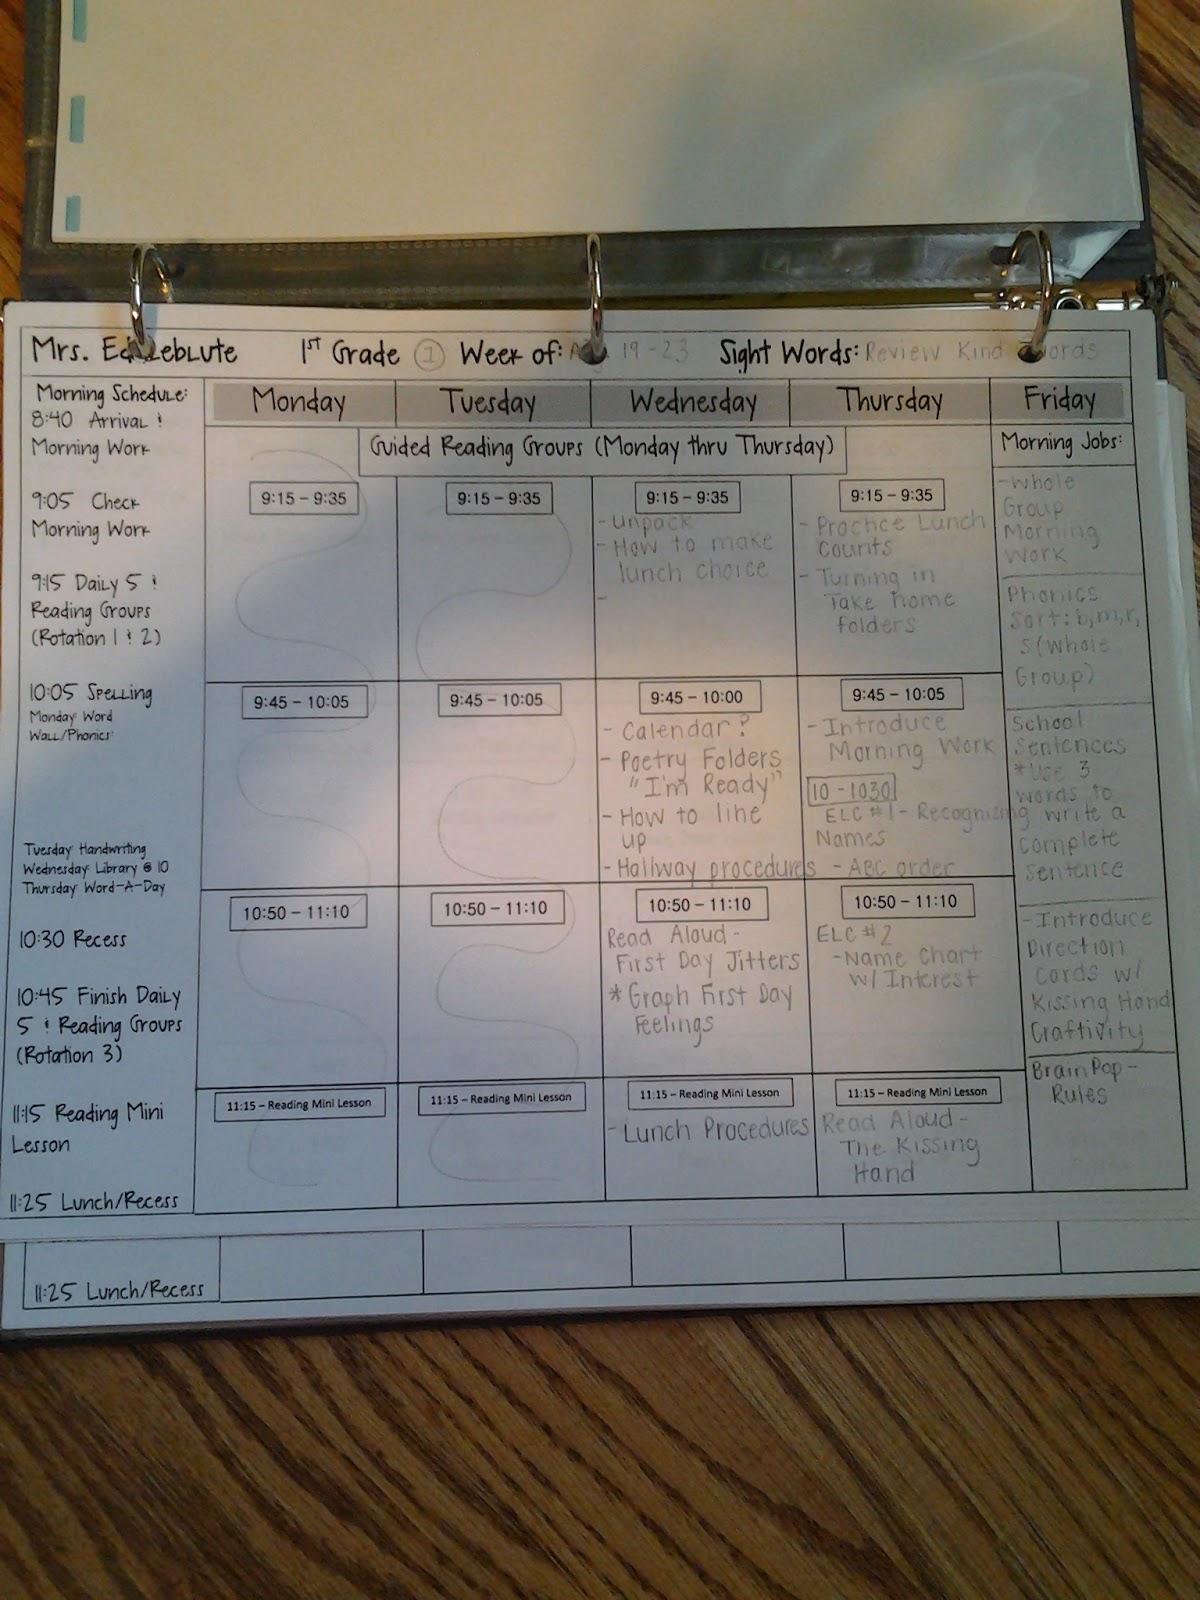 Mrs. 1st Grade 1 Week of: 19-23 Sight Words: Review Kind
Morning Schedule:
8:40 Arrival &
Morning Work
9:05 Check
Morning Work
9:15 Daily 5 &
Reading Groups
(Rotation 1 & 2)
10:05 Spelling
Monday: Word
Wall/Phonics:
Tuesday: Handwriting
Wednesday: Library @ 10
Thursday: Word-A-Day
10:30 Recess
10:45 Finish Daily
5 & Reading Groups
(Rotation 3)
11:15 Reading Mini
Lesson
11:25 Lunch/Recess
Monday Tuesday Wednesday Thursday Friday
Guided Reading Groups (Monday thru Thursday)
9:15 – 9:35
9:45 – 10:05
10:50 – 11:10
11:15 – Reading Mini Lesson
9:15 – 9:35
9:45 – 10:05
10:50 – 11:10
11:15 – Reading Mini Lesson
9:15 – 9:35
- Unpack
- How to make
lunch choice
-
9:45 – 10:00
- Calendar?
- Poetry Folders
"I'm Ready"
- How to line
up
- Hallway procedures
10:50 – 11:10
Read Aloud -
First Day Jitters
* Graph First Day
Feelings
11:15 – Reading Mini Lesson
- Lunch Procedures
9:15 – 9:35
- Practice Lunch
Counts
- Turning in
Take home
folders
9:45 – 10:05
- Introduce
Morning Work
10 - 1030
ELC #1 - Recognizing
Names
- ABC order
10:50 – 11:10
ELC #2
- Name Chart
w/ Interest
11:15 – Reading Mini Lesson
Read Aloud -
The Kissing
Hand
Morning Jobs:
- Whole
Group
Morning
Work
Phonics
Sort: b, m, r,
s (Whole
Group)
School
Sentences
* Use 3
words to
write a
complete
sentence
- Introduce
Direction
Cards w/
Kissing Hand
Craftivity
BrainPop -
Rules
11:25 Lunch/Recess